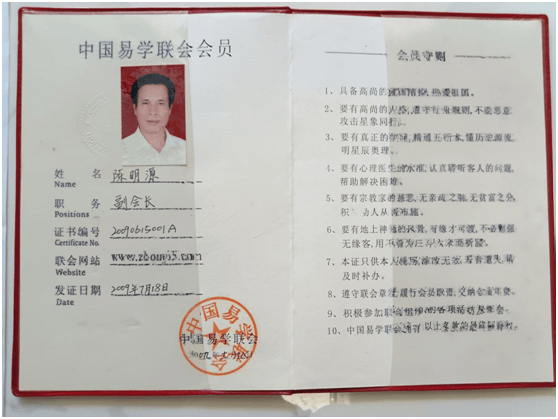 中国易学联会会员
姓 名 陈明源
Name
职 务 副会长
Positions
证书编号 20090615001A
Certificate No.
联会网站 www.zhouyi5.com
Website
发证日期 2009年7月18日
Date
中国易学联会
会员守则
1、具备高尚的 热爱祖国。
2、要有高尚的人格,遵守行业规则,不能恶意
攻击星象同行。
3、要有真正的学问,精通五行术,懂历 源流
明星辰奥理。
4、要有心理医生的水准,认真聆听客人的问题,
帮助解决困难。
5、要有宗教家的慈悲,无亲疏之别,无贫富之分,
积 劝人从 布施。
6、要有地上神 的风骨,有缘才可渡,不必勉强
无缘客,
7、本证只供本人使写,涂改无效,若有遗失,请
及时补办。
8、遵守联会章程,履行会员职责,交纳会员年费。
9、积极参加联会组织的各项活动及年会
10、中国易学联会